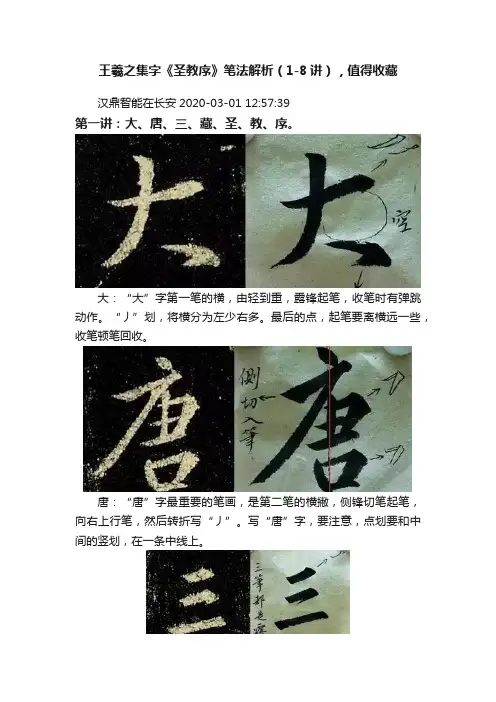 王羲之集字《圣教序》笔法解析（1-8讲），值得收藏
汉鼎智能在长安 2020-03-01 12:57:39
第一讲：大、唐、三、藏、圣、教、序。
大
大
空
大：“大”字第一笔的横，由轻到重，露锋起笔，收笔时有弹跳
动作。“丿”划，将横分为左少右多。最后的点，起笔要离横远一些，
收笔顿笔回收。
唐
側切入筆
唐
唐：“唐”字最重要的笔画，是第二笔的横撇，侧锋切笔起笔，
向右上行笔，然后转折写“丿”。写“唐”字，要注意，点划要和中
间的竖划，在一条中线上。
三
三筆都是露
三